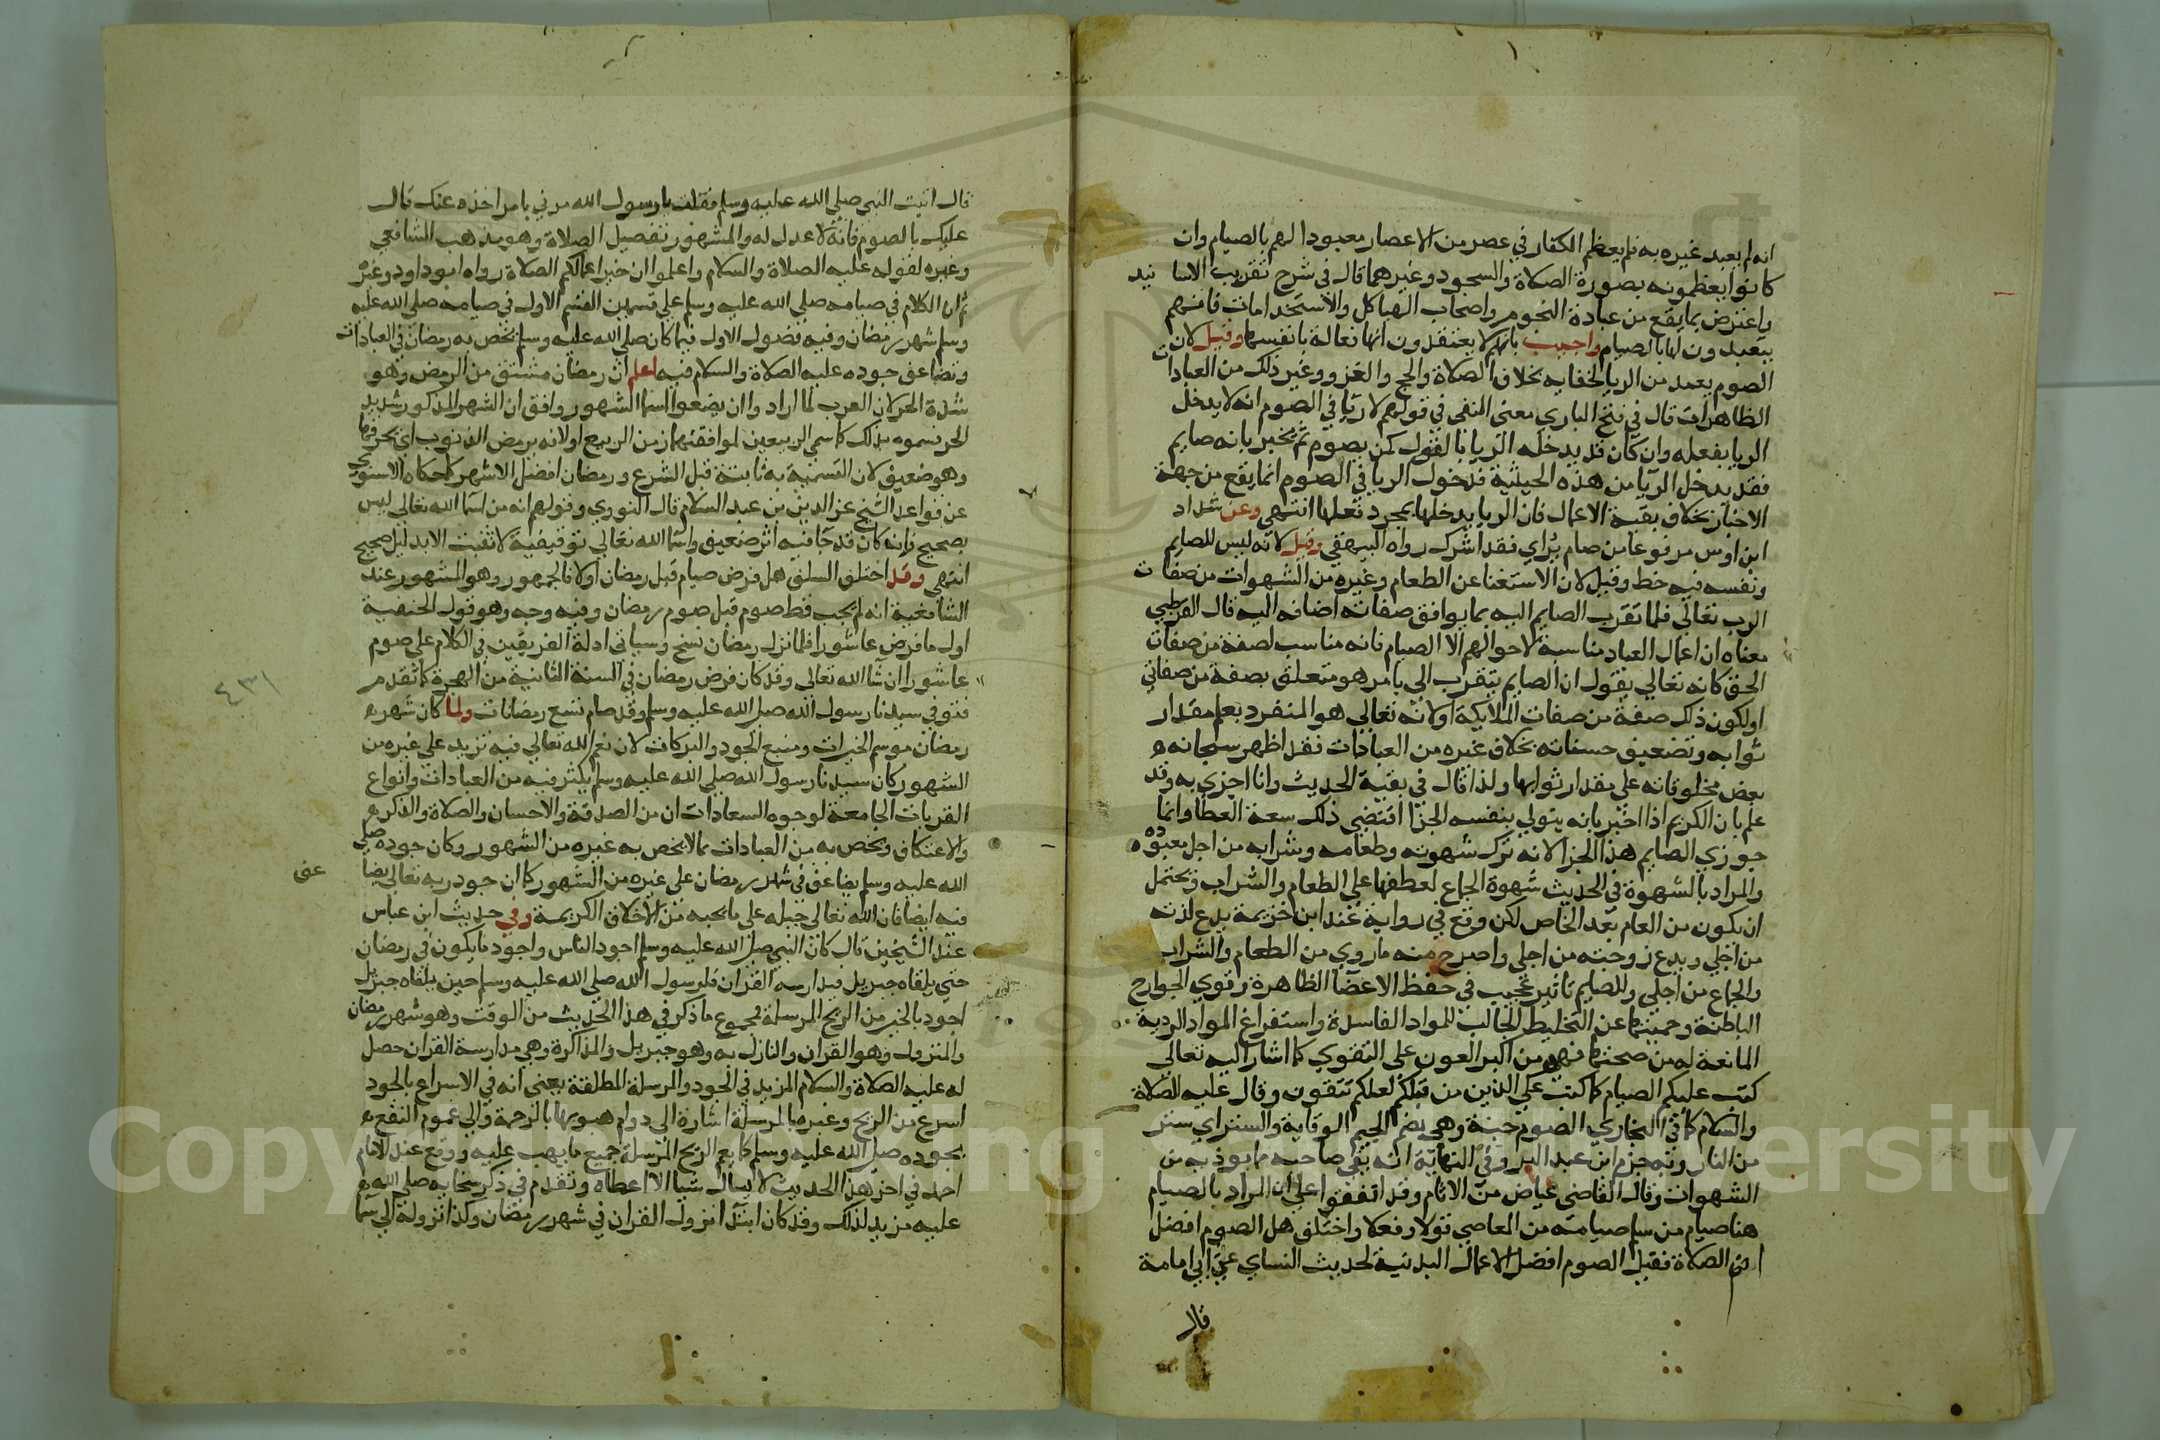 انه لم يعبد غيره به فلم يعظم الكفار في عصر من الاعصار معبودا لهم بالصيام وان
كانوا يعظمونه بصورة الصلاة والسجود وغيرهما قال في شرح تقريب الاسانيد
واعترض بما يقع من عبادة النجوم واصحاب الهياكل والاستخدامات فانهم
يتعبدون لها بالصيام واجيب بانهم لا يعتقدون انها فعالة بانفسها وقيل لان
الصوم يبعد من الريا لخفايه بخلاف الصلاة والحج والغزو وغير ذلك من العبادات
الظاهرات قال في فتح الباري معنى النفي في قولهم لا ريا في الصوم انه لا يدخل
الريا بفعله وان كان قد يدخله الريا بالقول كمن يصوم ثم يخبر بانه صايم
فقد يدخل الريا من هذه الحيثية فدخول الريا في الصوم انما يقع من جهة
الاخبار بخلاف بقية الاعمال فان الريا يدخلها بمجرد فعلها انتهي وعن شداد
ابن اوس مرفوعا من صام يراي فقد اشرك رواه البيهقي وقيل لانه ليس للصايم
ونفسه فيه حظ وقيل لان الاستغنا عن الطعام وغيره من الشهوات من صفات
الرب تعالي فلما تقرب الصايم اليه بما يوافق صفاته اضافه اليه قال القرطبي
معناه ان اعمال العباد مناسبة لاحوالهم الا الصيام فانه مناسب لصفة من صفات
الحق كانه تعالي يقول ان الصايم يتقرب الي بامر هو متعلق بصفة من صفاتي
او لكون ذلك صفة من صفات الملايكة او لانه تعالي هو المنفرد بعلم مقدار
ثوابه وتضعيف حسناته بخلاف غيره من العبادات فقد اظهر سبحانه
بعض مخلوقاته على مقدار ثوابها ولذا قال في بقية الحديث وانا اجزي به وقد
علم بان الكريم اذا اخبر بانه يتولي بنفسه الجزا اقتضى ذلك سعة العطا وانما
جوزي الصايم هذا الجزا لانه ترك شهوته وطعامه وشرابه من اجل معبوده
والمراد بالشهوة في الحديث شهوة الجماع لعطفها على الطعام والشراب ويحتمل
ان يكون من العام بعد الخاص لكن وقع في رواية عند ابن خزيمة يدع لذته
من اجلي ويدع زوجته من اجلي واصرح منه ما روي من الطعام والشراب
والجماع من اجلي وللصايم تاثير عجيب في حفظ الاعضا الظاهرة وقوي الجوارح
الباطنة وحميتها عن التخليط الجالب للمواد الفاسدة واستفراغ المواد الردية
المانعة له من صحتها فهو من اكبر العون على التقوي كما اشار اليه تعالي
كتب عليكم الصيام كما كتب على الذين من قبلكم لعلكم تتقون وقال عليه الصلاة
والسلام كما في البخاري الصوم جنة وهي بضم الجيم الوقاية والستر اي ستر
من النار وبه جزم ابن عبد البر وفي النهاية انه يقي صاحبه مما يوذيه من
الشهوات وقال القاضي عياض من الاثام وقد اتفقوا على ان المراد بالصيام
هنا صيام من سلم صيامه من المعاصي قولا وفعلا واختلف هل الصوم افضل
من الصلاة فقيل الصوم افضل الاعمال البدنية لحديث النساي عن ابي امامة
قال
قال اتيت النبي صلى الله عليه وسلم فقلت يا رسول الله مرني بامر اخذه عنك قال
عليك بالصوم فانه لا عدل له والمشهور تفضيل الصلاة وهو مذهب الشافعي
وغيره لقوله عليه الصلاة والسلام واعلموا ان خير اعمالكم الصلاة رواه ابو داود وغيره
ثم ان الكلام في صيامه صلى الله عليه وسلم على قسمين القسم الاول في صيامه صلى الله عليه
وسلم شهر رمضان وفيه فصول الاول فيما كان صلى الله عليه وسلم يخص به رمضان في العبادات
وتضاعف جوده عليه الصلاة والسلام فيه اعلم ان رمضان مشتق من الرمض وهو
شدة الحر لان العرب لما اراد وا ان يضعوا اسما الشهور وافق ان الشهر المذكور شديد
الحر فسموه بذلك كما سمي الربيعين لموافقتهما زمن الربيع او لانه يرمض الذنوب اي يحرقها
وهو ضعيف لان التسمية به ثابتة قبل الشرع ورمضان افضل الاشهر كما حكاه الاسنوي
عن قواعد الشيخ عز الدين بن عبد السلام قال النووي وقولهم انه من اسما الله تعالى ليس
بصحيح وان كان قد جا فيه اثر ضعيف واسما الله تعالي توقيفية لا تثبت الا بدليل صحيح
انتهي وقد اختلف السلف هل فرض صيام قبل رمضان او لا فالجمهور وهو المشهور عند
الشافعية انه لم يجب قط صوم قبل صوم رمضان وفيه وجه وهو قول الحنفية
اول ما فرض عاشورا فلما نزل رمضان نسخ وسياتي ادلة الفريقين في الكلام على صوم
عاشورا ان شا الله تعالى وقد كان فرض رمضان في السنة الثانية من الهجرة كما تقدم
فتوفي سيدنا رسول الله صلى الله عليه وسلم وقد صام تسع رمضانات ولما كان شهر
رمضان موسم الخيرات ومنبع الجود والبركات لان نعم الله تعالي فيه تزيد على غيره من
الشهور كان سيدنا رسول الله صلى الله عليه وسلم يكثر فيه من العبادات وانواع
القربات الجامعة لوجوه السعادات من الصدقة والاحسان والصلاة والذكر
والاعتكاف ويخص به من العبادات ما لا يخص به غيره من الشهور وكان جوده صلى
الله عليه وسلم يضاعف في شهر رمضان على غيره من الشهور كما ان جود ربه تعالى يضا
عف
فيه ايضا فان الله تعالى جبله على ما يحبه من الاخلاق الكريمة وفي حديث ابن عباس
عند الشيخين قال كان النبي صلى الله عليه وسلم اجود الناس واجود ما يكون في رمضان
حتى يلقاه جبريل فيدارسه القران فلرسول الله صلى الله عليه وسلم حين يلقاه جبريل
اجود بالخير من الريح المرسلة فمجموع ما ذكر في هذا الحديث من الوقت وهو شهر رمضان
والمنزول وهو القران والنازل به وهو جبريل والمذاكرة وهي مدارسة القران حصل
له عليه الصلاة والسلام المزيد في الجود والمرسلة المطلقة يعني انه في الاسراع بالجود
اسرع من الريح وعبر بالمرسلة اشارة الى دوام هبوبها بالرحمة والي عموم النفع
بجوده صلى الله عليه وسلم كما يعم الريح المرسلة جميع ما يهب عليه ووقع عند الامام
احمد في اخر هذا الحديث لا يسال شيا الا اعطاه وتقدم في ذكر سخايه صلى الله
عليه مزيد لذلك وقد كان ابتدا نزول القران في شهر رمضان وكذا نزوله الي سما
Copyright © King Saud University